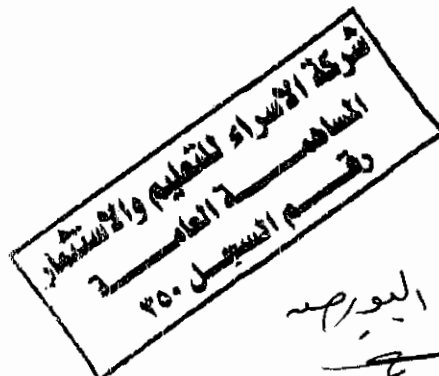 شركة الاسراء للتعليم والاستثمار
المساهمــة العامــة
رقــم السجــل ٣٥٠
البورصه